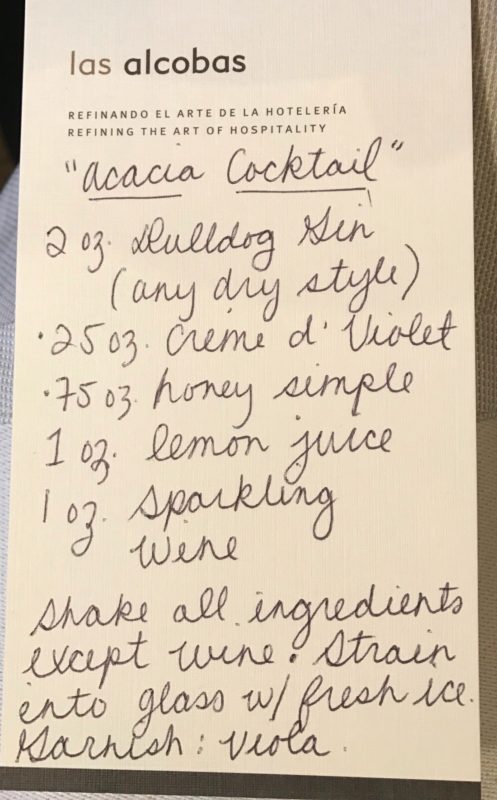 las alcobas
REFINANDO EL ARTE DE LA HOTELERÍA
REFINING THE ART OF HOSPITALITY
"Acacia Cocktail"
2 oz. Bulldog Gin
(any dry style)
.25 oz. Crème d' Violet
.75 oz. honey simple
1 oz. lemon juice
1 oz. Sparkling
Wine
Shake all ingredients
except wine. Strain
into glass w/ fresh ice.
Garnish: Viola.